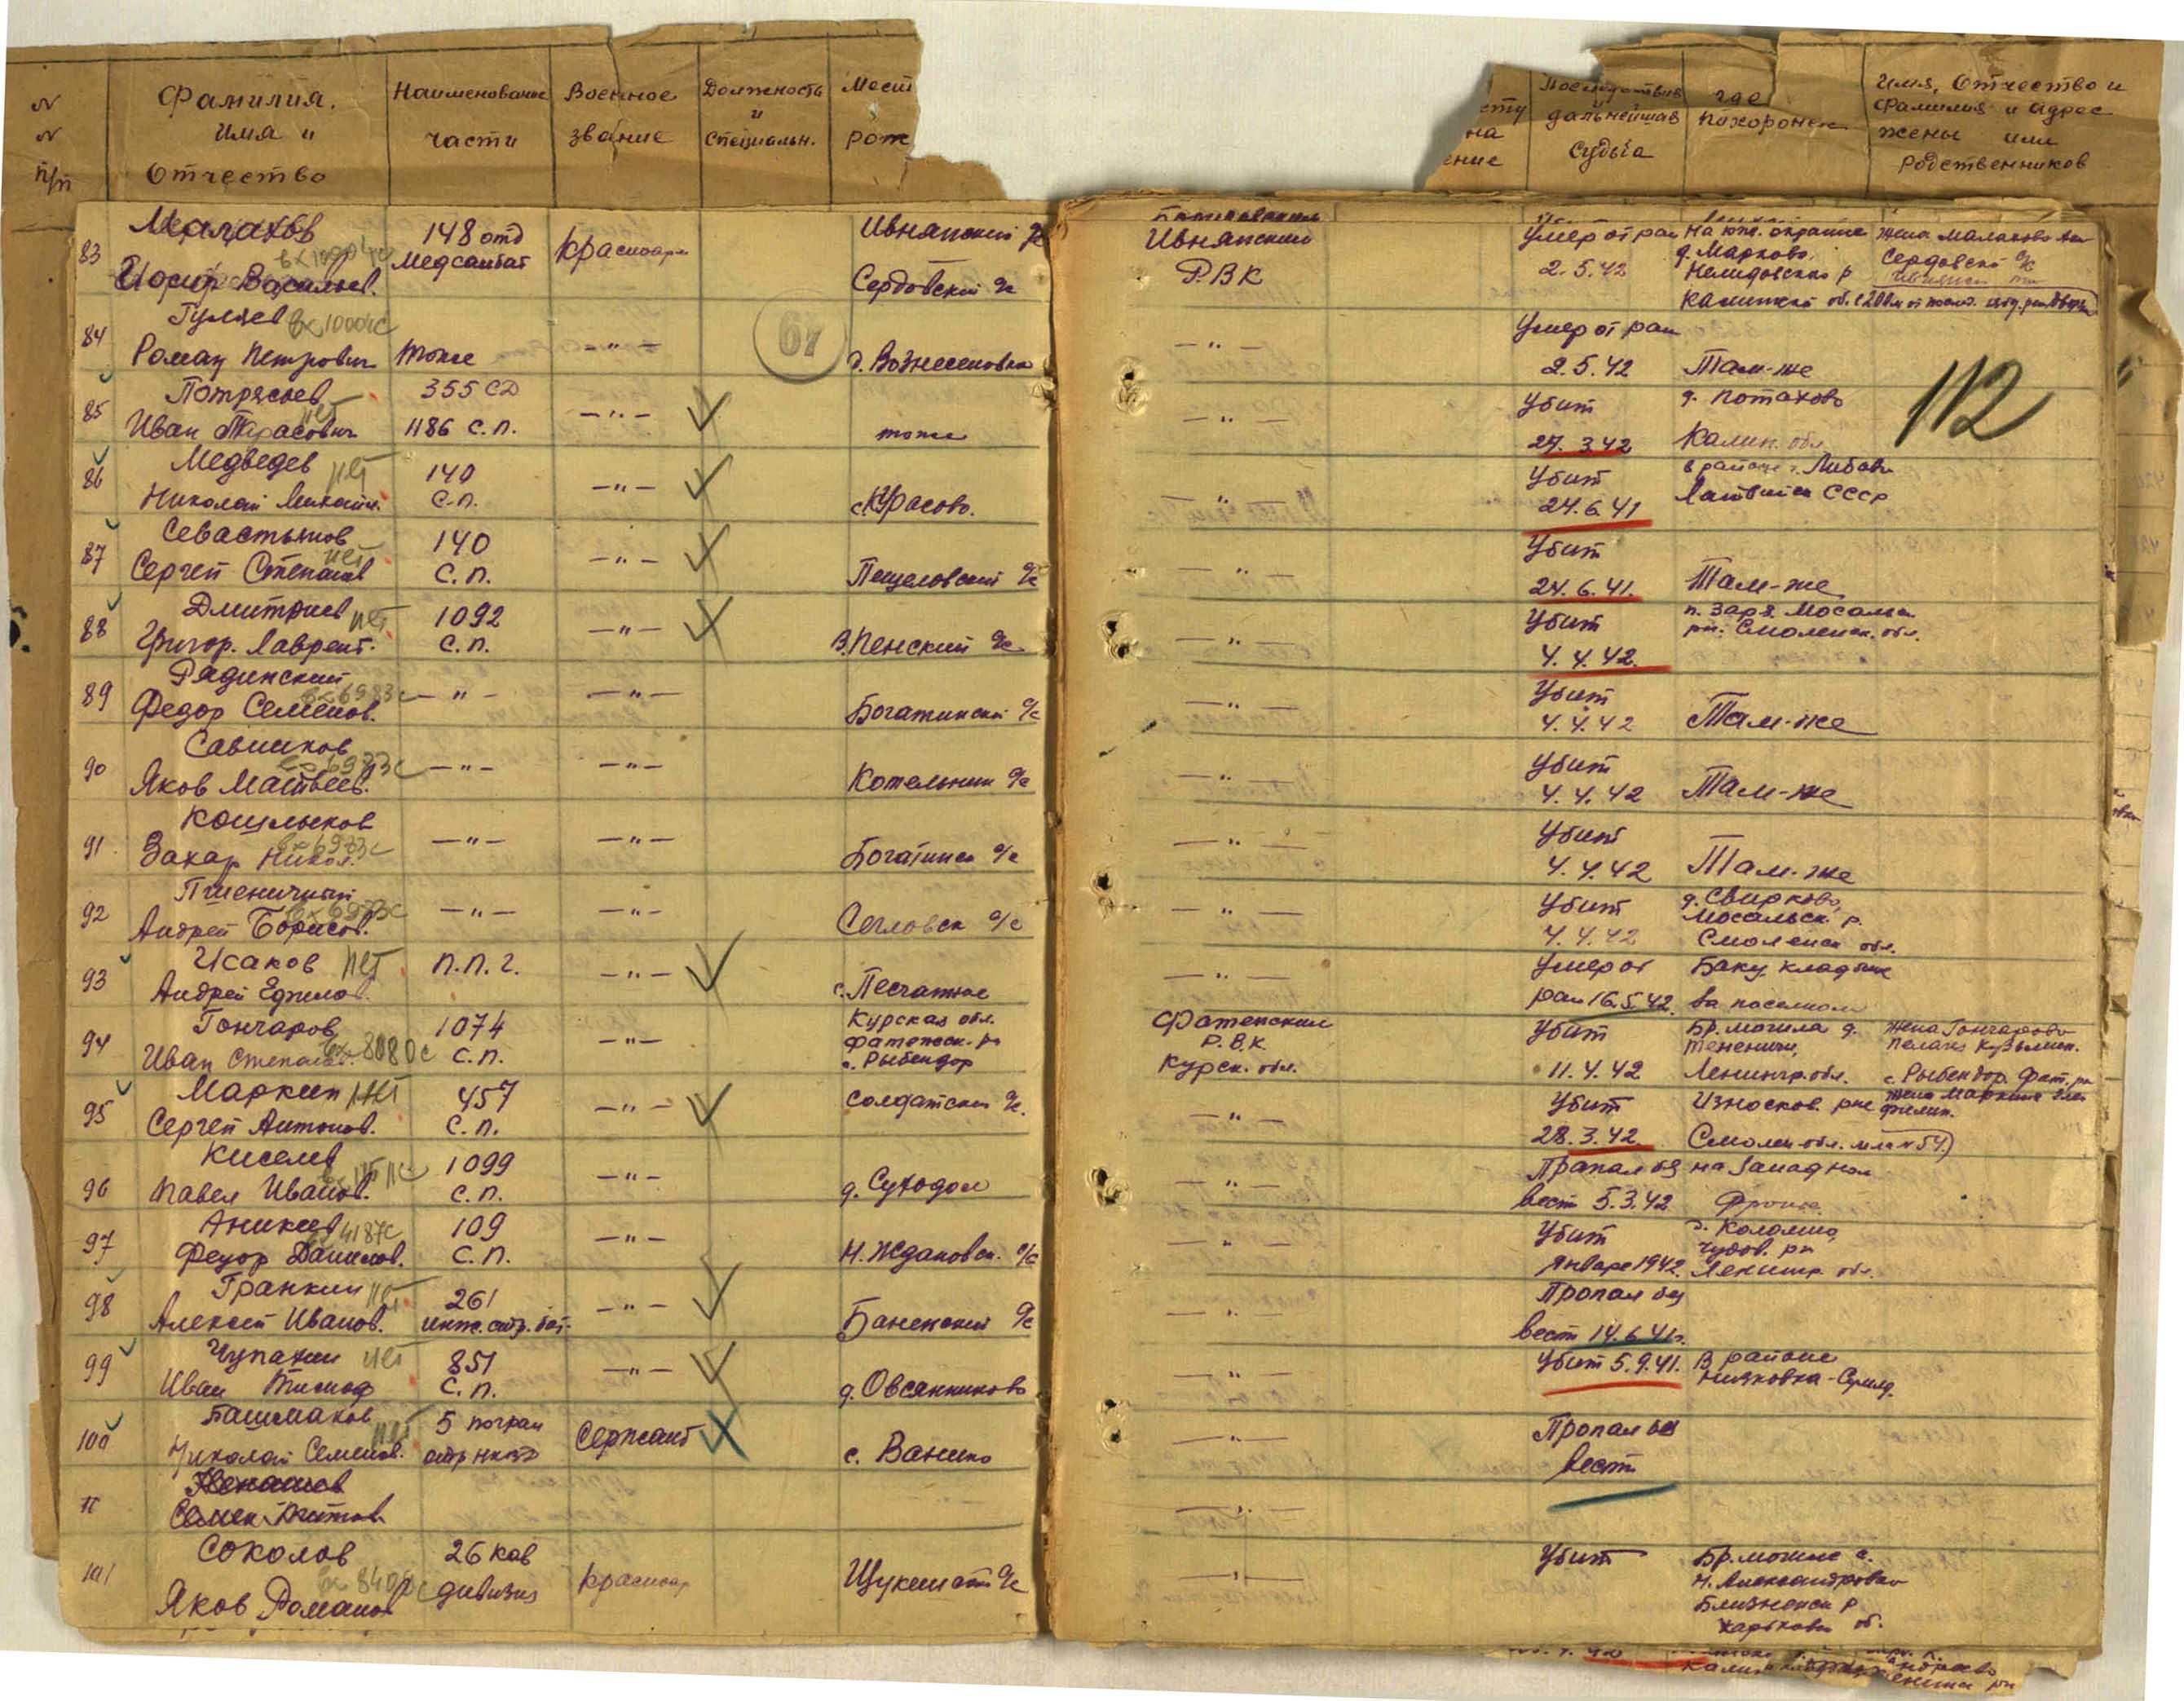 N N п/п
Фамилия, имя и Отчество
Наименование части
Военное звание
Должность и специальн.
Мест рож
Последствия дальнейшая судьба
где похоронен
имя, отчество и фамилия и адрес жены или родственников
83 Малахов Василев. 148 отд Медсанбат Красноарм Ивнянский Сердовский с/с
Ивнянский Р.В.К Умер от ран 2.5.42 на юж. окраине д. Марково Нелидовского р жена Малахова
84 Гуляев вх10004с Роман Петрович тоже —"— с. Вознесеновка
67
—"— Умер от ран 2.5.42 Там-же
112
85 Потрясаев нет Иван Тарасович 355 СД 1186 с.п. —"— тоже
—"— Убит 27.3.42 д. Потахово Калин. обл
86 Медведев нет Николай Михайл. 140 с.п. —"— с. Курасово.
—"— Убит 24.6.41 в районе г. Либава Латвийск СССР
87 Севастьянов нет Сергей Степанов 140 с.п. —"— с/с
—"— Убит 24.6.41. Там-же
88 Дмитриев нет Григор. Лаврент. 1092 с.п. —"— В.Пенский с/с
—"— Убит 4.4.42. п. Заря Мосальск рн. Смоленск. обл.
89 Радинский вх6983с Федор Семенов. —"— —"— Богатинский с/с
—"— Убит 4.4.42 Там-же
90 Савишков Яков Матвеев. —"— —"— Котельник с/с
—"— Убит 4.4.42 Там-же
91 Захар Никол. —"— —"— Богатинск с/с
—"— Убит 4.4.42 Там-же
92 Пшеничный Андрей Борисов. —"— —"— с/с
—"— Убит 4.4.42 д. Свирково, Мосальск. р. Смоленск обл.
93 Исаков нет Андрей Ефимов. П.П.Г. —"— с. Песчаное
—"— Умер от ран 16.5.42. Баку кладбище за поселком
94 Гончаров Иван Степанов. вх8080с 1074 с.п. —"— Курская обл. Фатежск. рн с. Рыбендор
Фатежский Р.В.К. Курск. обл. Убит 11.4.42 Бр. могила д. Ленингр. обл. жена Гончарова Кузьмин. с. Рыбендор. Фат. рн
95 Маркин нет Сергей Антонов. 457 с.п. —"— Солдатский с/с.
—"— Убит 28.3.42 Износков. рне Смолен обл. жена Маркина
96 Киселев Павел Иванов. 1099 с.п. —"— д. Суходол
—"— Пропал без вест 5.3.42 на Западном Фронте.
97 Аникеев 4187с Федор Данилов. 109 с.п. —"— Н. Ждановск. с/с
—"— Убит январе 1942. д. Коломно, Чудов. рн Ленингр. обл.
98 Гранкин нет Алексей Иванов. 261 инж. стр. бат. —"— Банинский с/с
—"— Пропал без вест 14.6.41г.
99 Чупахин нет Иван Тимоф 851 с.п. —"— д. Овсянниково
—"— Убит 5.9.41. В районе
100 Башмаков нет Николай Семенов. 5 погран отр НКВД Сержант с. Ванино
—"— Пропал без вест
—"—
101 Соколов Яков Романов 26 кав дивизия Красноар с/с
—"— Убит Бр. могила с. Н. Александровка Близненск р Харьковск об.